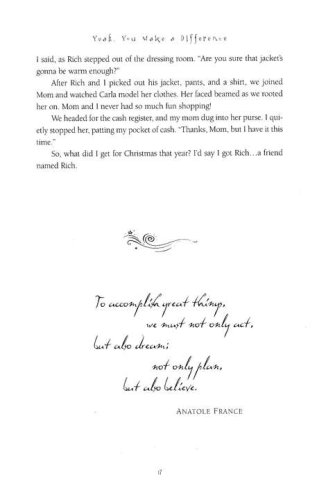 Yeah, You Make a Difference
I said, as Rich stepped out of the dressing room. "Are you sure that jacket's
gonna be warm enough?"
After Rich and I picked out his jacket, pants, and a shirt, we joined
Mom and watched Carla model her clothes. Her faced beamed as we rooted
her on. Mom and I never had so much fun shopping!
We headed for the cash register, and my mom dug into her purse. I qui-
etly stopped her, patting my pocket of cash. "Thanks, Mom, but I have it this
time."
So, what did I get for Christmas that year? I'd say I got Rich...a friend
named Rich.
To accomplish great things,
we must not only act,
but also dream;
not only plan,
but also believe.
ANATOLE FRANCE
17